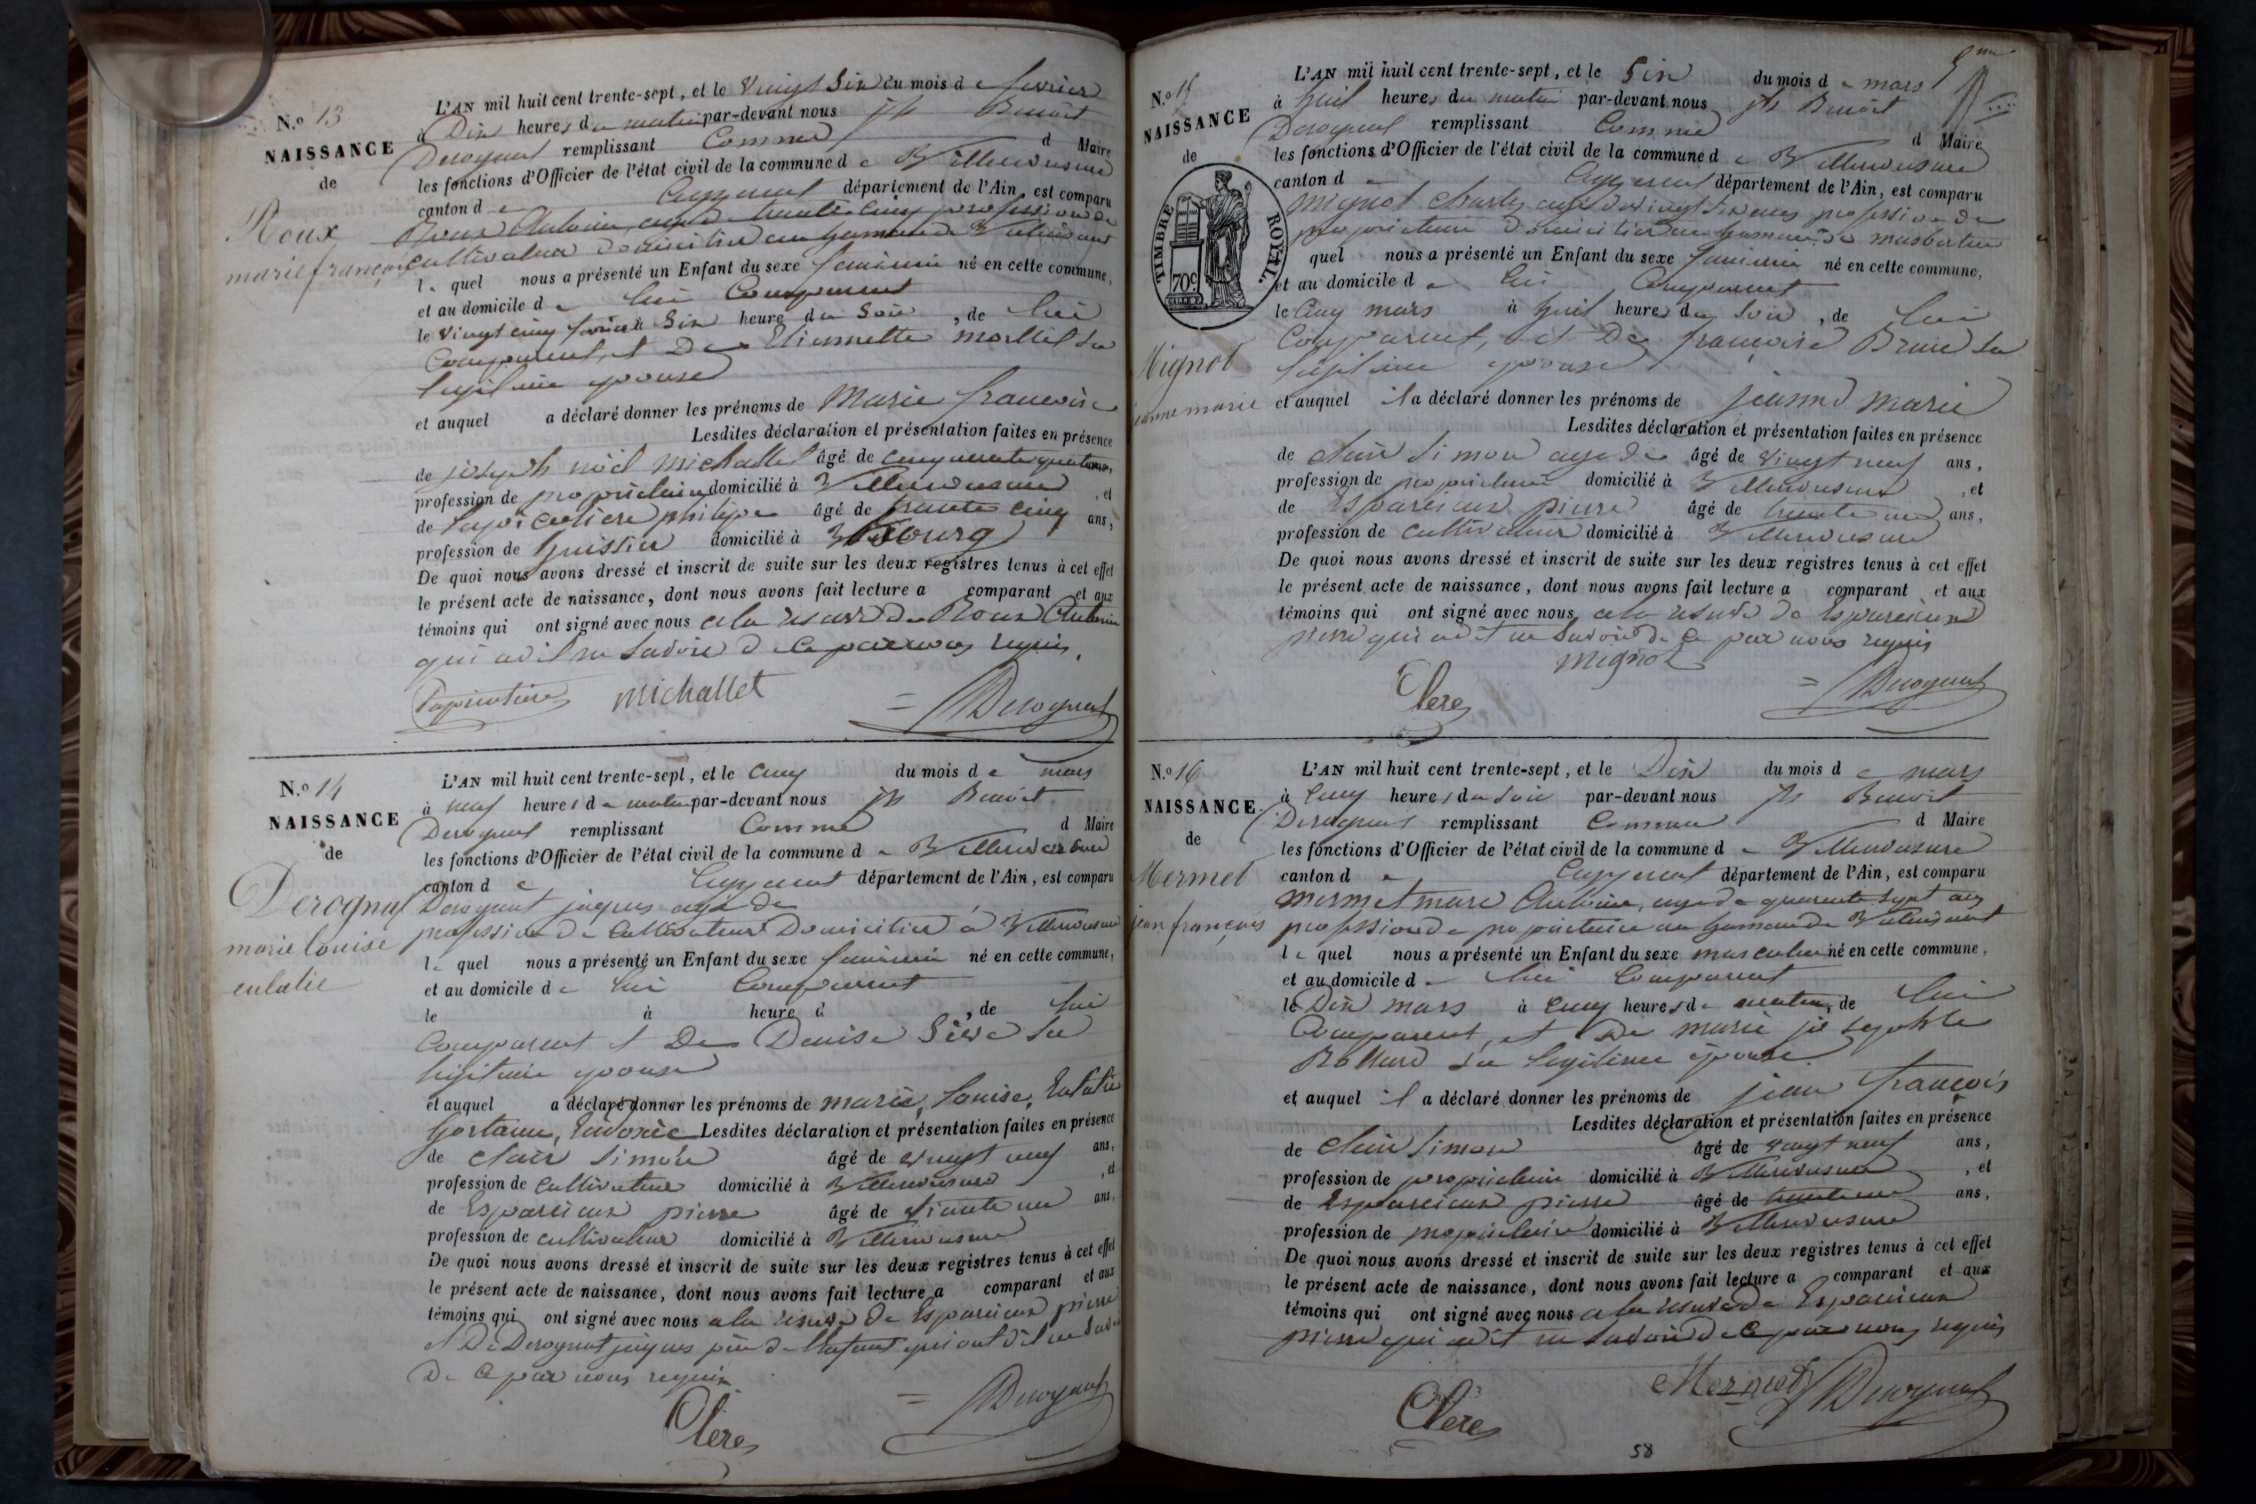 N.º 13
NAISSANCE
de
Roux
marie françoise
L'AN mil huit cent trente-sept, et le vingt six du mois de fevrier
à Dix heures du matin par-devant nous jh Benoit
Derognat remplissant Comme d Maire
les fonctions d'Officier de l'état civil de la commune de Villereversure
canton de Ceyzeriat département de l'Ain, est comparu
Roux Antoine, agé de trente cinq profession de
cultivateur domicilié au hameau de
le quel nous a présenté un Enfant du sexe feminin né en cette commune,
et au domicile de lui Comparant
le vingt cinq fevrier à Six heure du Soir, de lui
Comparant, et De Etiennette morttel Sa
legitime epouse
et auquel a déclaré donner les prénoms de Marie francoise
Lesdites déclaration et présentation faites en présence
de joseph noël michallet âgé de cinquante quatre ans,
profession de propriétaire domicilié à Villereversure, et
de philipe âgé de trente cinq ans,
profession de huissier domicilié à Bourg
De quoi nous avons dressé et inscrit de suite sur les deux registres tenus à cet effet
le présent acte de naissance, dont nous avons fait lecture a comparant et aux
témoins qui ont signé avec nous a la reserve de Roux Antoine
qui a dit ne Savoir de ce par nous requis.
michallet
Derognat
N.º 14
NAISSANCE
de
Derognat
marie louise
eulalie
L'AN mil huit cent trente-sept, et le cinq du mois de mars
à neuf heures du matin par-devant nous jh Benoit
Derognat remplissant Comme d Maire
les fonctions d'Officier de l'état civil de la commune de Villereversure
canton de Ceyzeriat département de l'Ain, est comparu
Derognat jaques agé de
profession de Cultivateur Domicilié à Villereversure
le quel nous a présenté un Enfant du sexe feminin né en cette commune,
et au domicile de lui Comparant
le à heure d , de lui
Comparant et De Denise Sève Sa
legitime epouse
et auquel a déclaré donner les prénoms de marie, Louise, Eulalie
hortance, Eudoxie Lesdites déclaration et présentation faites en présence
de Clair Simon âgé de vingt neuf ans,
profession de Cultivateur domicilié à Villereversure, et
de Esparcieux pierre âgé de trente un ans,
profession de cultivateur domicilié à Villereversure
De quoi nous avons dressé et inscrit de suite sur les deux registres tenus à cet effet
le présent acte de naissance, dont nous avons fait lecture a comparant et aux
témoins qui ont signé avec nous a la reserve de Esparcieux pierre
et De Derognat jaques père de l'enfant qui ont dit ne Savoir
De ce par nous requis
Clere
Derognat
N.º 15
NAISSANCE
de
TIMBRE ROYAL
70c
Mignot
jeanne marie
L'AN mil huit cent trente-sept, et le Six du mois de mars
à huit heures du matin par-devant nous jh Benoit
Derognat remplissant Comme d Maire
les fonctions d'Officier de l'état civil de la commune de Villereversure
canton de Ceyzeriat département de l'Ain, est comparu
mignot Charles agé de vingt Six ans profession de
propriétaire Domicilié au hameau de
quel nous a présenté un Enfant du sexe feminin né en cette commune,
et au domicile de lui Comparant
le Cinq mars à huit heures du Soir, de lui
Comparant, et De françoise Brun Sa
legitime epouse
et auquel il a déclaré donner les prénoms de jeanne marie
Lesdites déclaration et présentation faites en présence
de Clair Simon agé de âgé de vingt neuf ans,
profession de propriétaire domicilié à Villereversure, et
de Esparcieux pierre âgé de trente un ans,
profession de cultivateur domicilié à Villereversure
De quoi nous avons dressé et inscrit de suite sur les deux registres tenus à cet effet
le présent acte de naissance, dont nous avons fait lecture a comparant et aux
témoins qui ont signé avec nous, a la reserve de Esparcieux
pierre qui a dit ne Savoir de ce par nous requis
mignot
Clere
Derognat
N.º 16
NAISSANCE
de
Mermet
jean françois
L'AN mil huit cent trente-sept, et le Dix du mois de mars
à Cinq heures du Soir par-devant nous jh Benoit
Derognat remplissant Comme d Maire
les fonctions d'Officier de l'état civil de la commune de Villereversure
canton de Ceyzeriat département de l'Ain, est comparu
mermet marc Antoine, agé de quarente Sept ans
profession de propriétaire au hameau de
le quel nous a présenté un Enfant du sexe masculin né en cette commune,
et au domicile de lui Comparant
le Dix mars à Cinq heures de matin, de lui
Comparant, et De marie josephte
Sa legitime épouse
et auquel il a déclaré donner les prénoms de jean françois
Lesdites déclaration et présentation faites en présence
de Clair Simon âgé de vingt neuf ans,
profession de propriétaire domicilié à Villereversure, et
de Esparcieux pierre âgé de trente un ans,
profession de propriétaire domicilié à Villereversure
De quoi nous avons dressé et inscrit de suite sur les deux registres tenus à cet effet
le présent acte de naissance, dont nous avons fait lecture a comparant et aux
témoins qui ont signé avec nous a la reserve de Esparcieux
pierre qui a dit ne Savoir de ce par nous requis
Mermet
Derognat
Clere
58